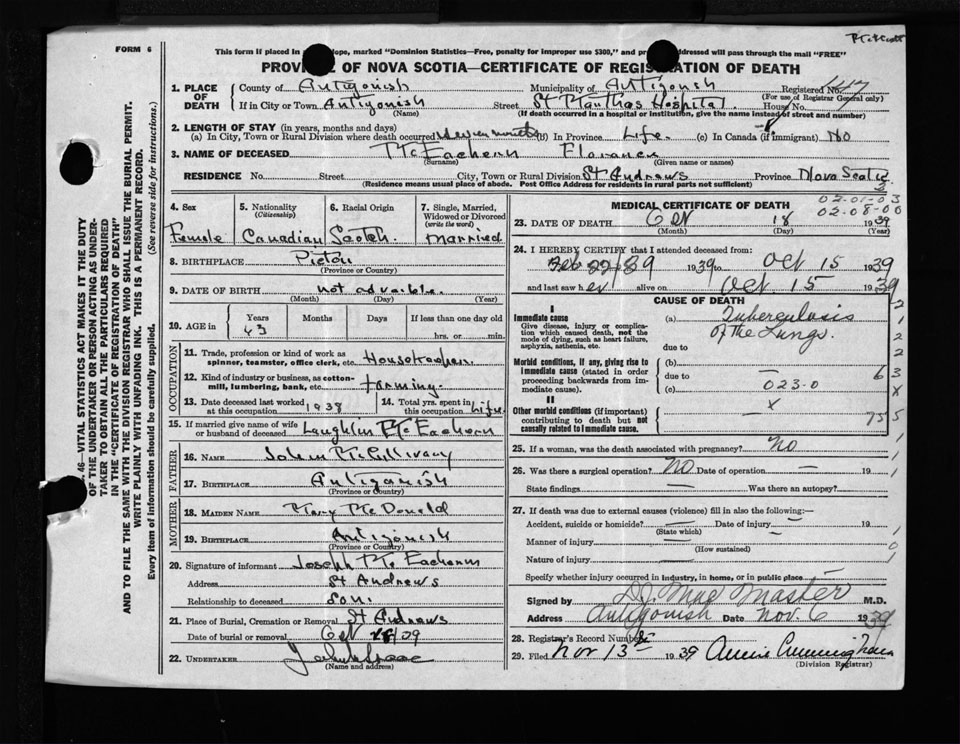 FORM 6
This form if placed in ope, marked "Dominion Statistics—Free, penalty for improper use $300," and pr addressed will pass through the mail "FREE"
PROVINCE OF NOVA SCOTIA—CERTIFICATE OF REGISTRATION OF DEATH
1. PLACE OF DEATH County of Antigonish Municipality of Antigonish Registered No.
(For use of Registrar General only)
If in City or Town Antigonish Street St Marthas Hospital House No.
(Name) (If death occurred in a hospital or institution, give the name instead of street and number)
2. LENGTH OF STAY (in years, months and days)
(a) In City, Town or Rural Division where death occurred seven months (b) In Province Life. (c) In Canada (if immigrant) No
3. NAME OF DECEASED McEachern Florance
(Surname) (Given name or names)
RESIDENCE No. Street City, Town or Rural Division St Andrews Province Nova Scotia
(Residence means usual place of abode. Post Office Address for residents in rural parts not sufficient)
4. Sex
Female
5. Nationality
(Citizenship)
Canadian
6. Racial Origin
Scotch
7. Single, Married, Widowed or Divorced
(write the word)
Married
8. BIRTHPLACE Pictou
(Province or Country)
9. DATE OF BIRTH not
(Month) (Day) (Year)
10. AGE in Years Months Days If less than one day old
43 hrs. or min.
OCCUPATION
11. Trade, profession or kind of work as spinner, teamster, office clerk, etc. Housekeeper.
12. Kind of industry or business, as cotton-mill, lumbering, bank, etc. farming.
13. Date deceased last worked at this occupation 1938
14. Total yrs. spent in this occupation Life
15. If married give name of wife or husband of deceased Laughlin McEachern
FATHER
16. NAME John McGillivary
17. BIRTHPLACE Antigonish
(Province or Country)
MOTHER
18. MAIDEN NAME Mary McDonald
19. BIRTHPLACE Antigonish
(Province or Country)
20. Signature of informant Joseph McEachern
Address St Andrews
Relationship to deceased Son.
21. Place of Burial, Cremation or Removal St Andrews
Date of burial or removal Oct /39
22. UNDERTAKER
(Name and address)
MEDICAL CERTIFICATE OF DEATH
02-01-03
02-08-00
23. DATE OF DEATH Oct 18 1939
(Month) (Day) (Year)
24. I HEREBY CERTIFY that I attended deceased from:
Feb 1939 to Oct 15 1939
and last saw her alive on Oct 15 1939
CAUSE OF DEATH
I
Immediate cause (a) Tuberculosis of the Lungs.
Give disease, injury or complication which caused death, not the mode of dying, such as heart failure, asphyxia, asthenia, etc.
due to
Morbid conditions, if any, giving rise to immediate cause (stated in order proceeding backwards from immediate cause).
(b) —
due to
(c) 023.0
II
Other morbid conditions (if important) contributing to death but not causally related to immediate cause.
x
—
25. If a woman, was the death associated with pregnancy? No
26. Was there a surgical operation? No Date of operation — 19
State findings — Was there an autopsy?
27. If death was due to external causes (violence) fill in also the following:—
Accident, suicide or homicide? — Date of injury — 19
(State which)
Manner of injury —
(How sustained)
Nature of injury —
Specify whether injury occurred in industry, in home, or in public place —
Signed by M.D.
Address Antigonish Date Nov. 6 1939
28. Registrar's Record Number
29. Filed Nov 13th 1939 Annie Cunningham
(Division Registrar)
46—VITAL STATISTICS ACT MAKES IT THE DUTY
OF THE UNDERTAKER OR PERSON ACTING AS UNDER-
TAKER TO OBTAIN ALL THE PARTICULARS REQUIRED
IN THE "CERTIFICATE OF REGISTRATION OF DEATH"
AND TO FILE THE SAME WITH THE DIVISION REGISTRAR WHO SHALL ISSUE THE BURIAL PERMIT.
WRITE PLAINLY WITH UNFADING INK. THIS IS A PERMANENT RECORD.
Every item of information should be carefully supplied. (See reverse side for instructions.)